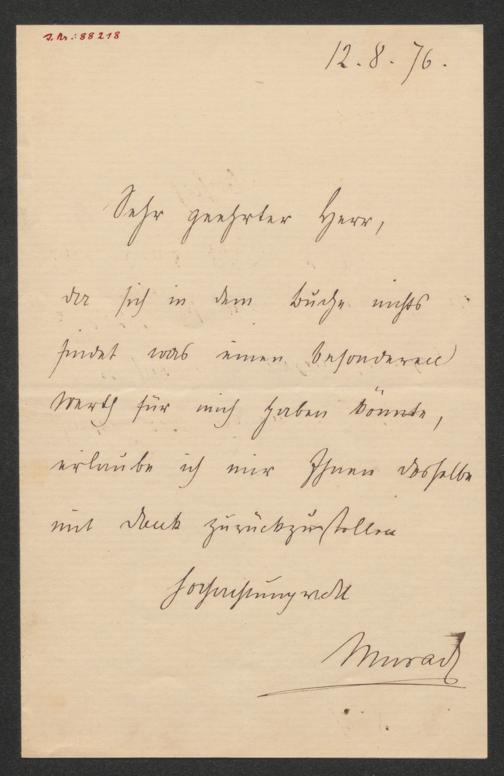 J. Nr.: 88218
12. 8. 76.
Sehr geehrter Herr,
da sich in dem Buche nichts
findet was einen besonderen
Werth für mich haben könnte,
erlaube ich mir Ihnen dasselbe
mit Dank zurückzustellen
Hochachtungsvoll